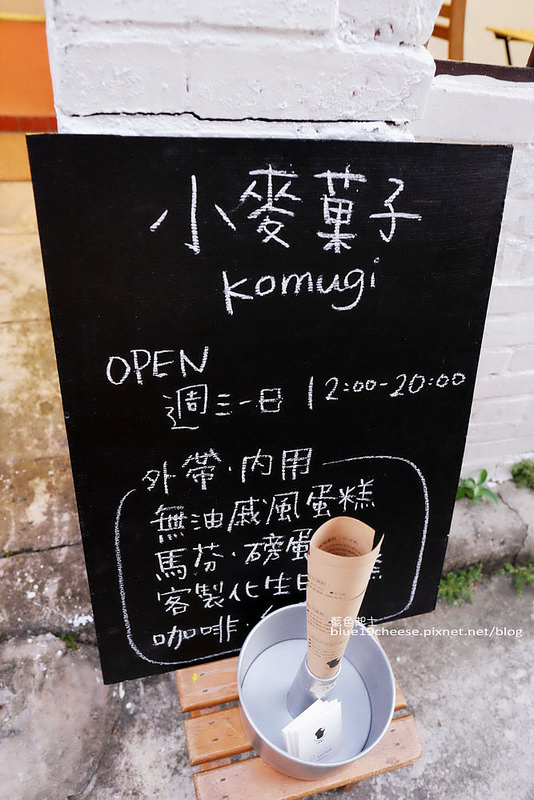 小麥菓子
komugi
OPEN
週三-日 12:00-20:00
外帶·內用
無油戚風蛋糕
馬芬·磅蛋糕
客製化生日
咖啡·
藍色起士
blue19cheese.pixnet.net/blog